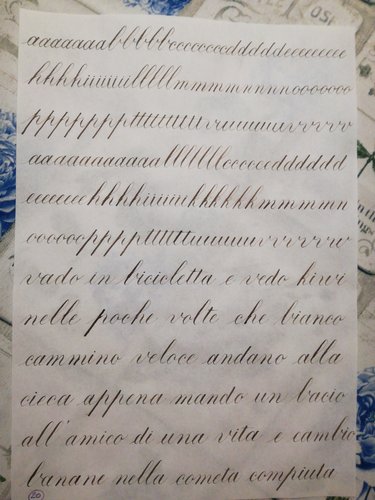 aaaaaaabbbbbccccccccdddddeeeeeeee
hhhhiiiiiilllllmmmmnnnnooooooo
pppppppttttttttuuuuuuuvvvvv
aaaaaaaaaaabbbbbbbccccccdddddd
eeeeeeehhhhiiiiiikkkkkkmmmmn
ooooooppppttttttuuuuuuvvvvvv
vado in bicicletta e vedo kiwi
nelle poche volte che bianco
cammino veloce andano alla
cieca appena mando un bacio
all'amico di una vita e cambio
banane nella cometa compiuta
20